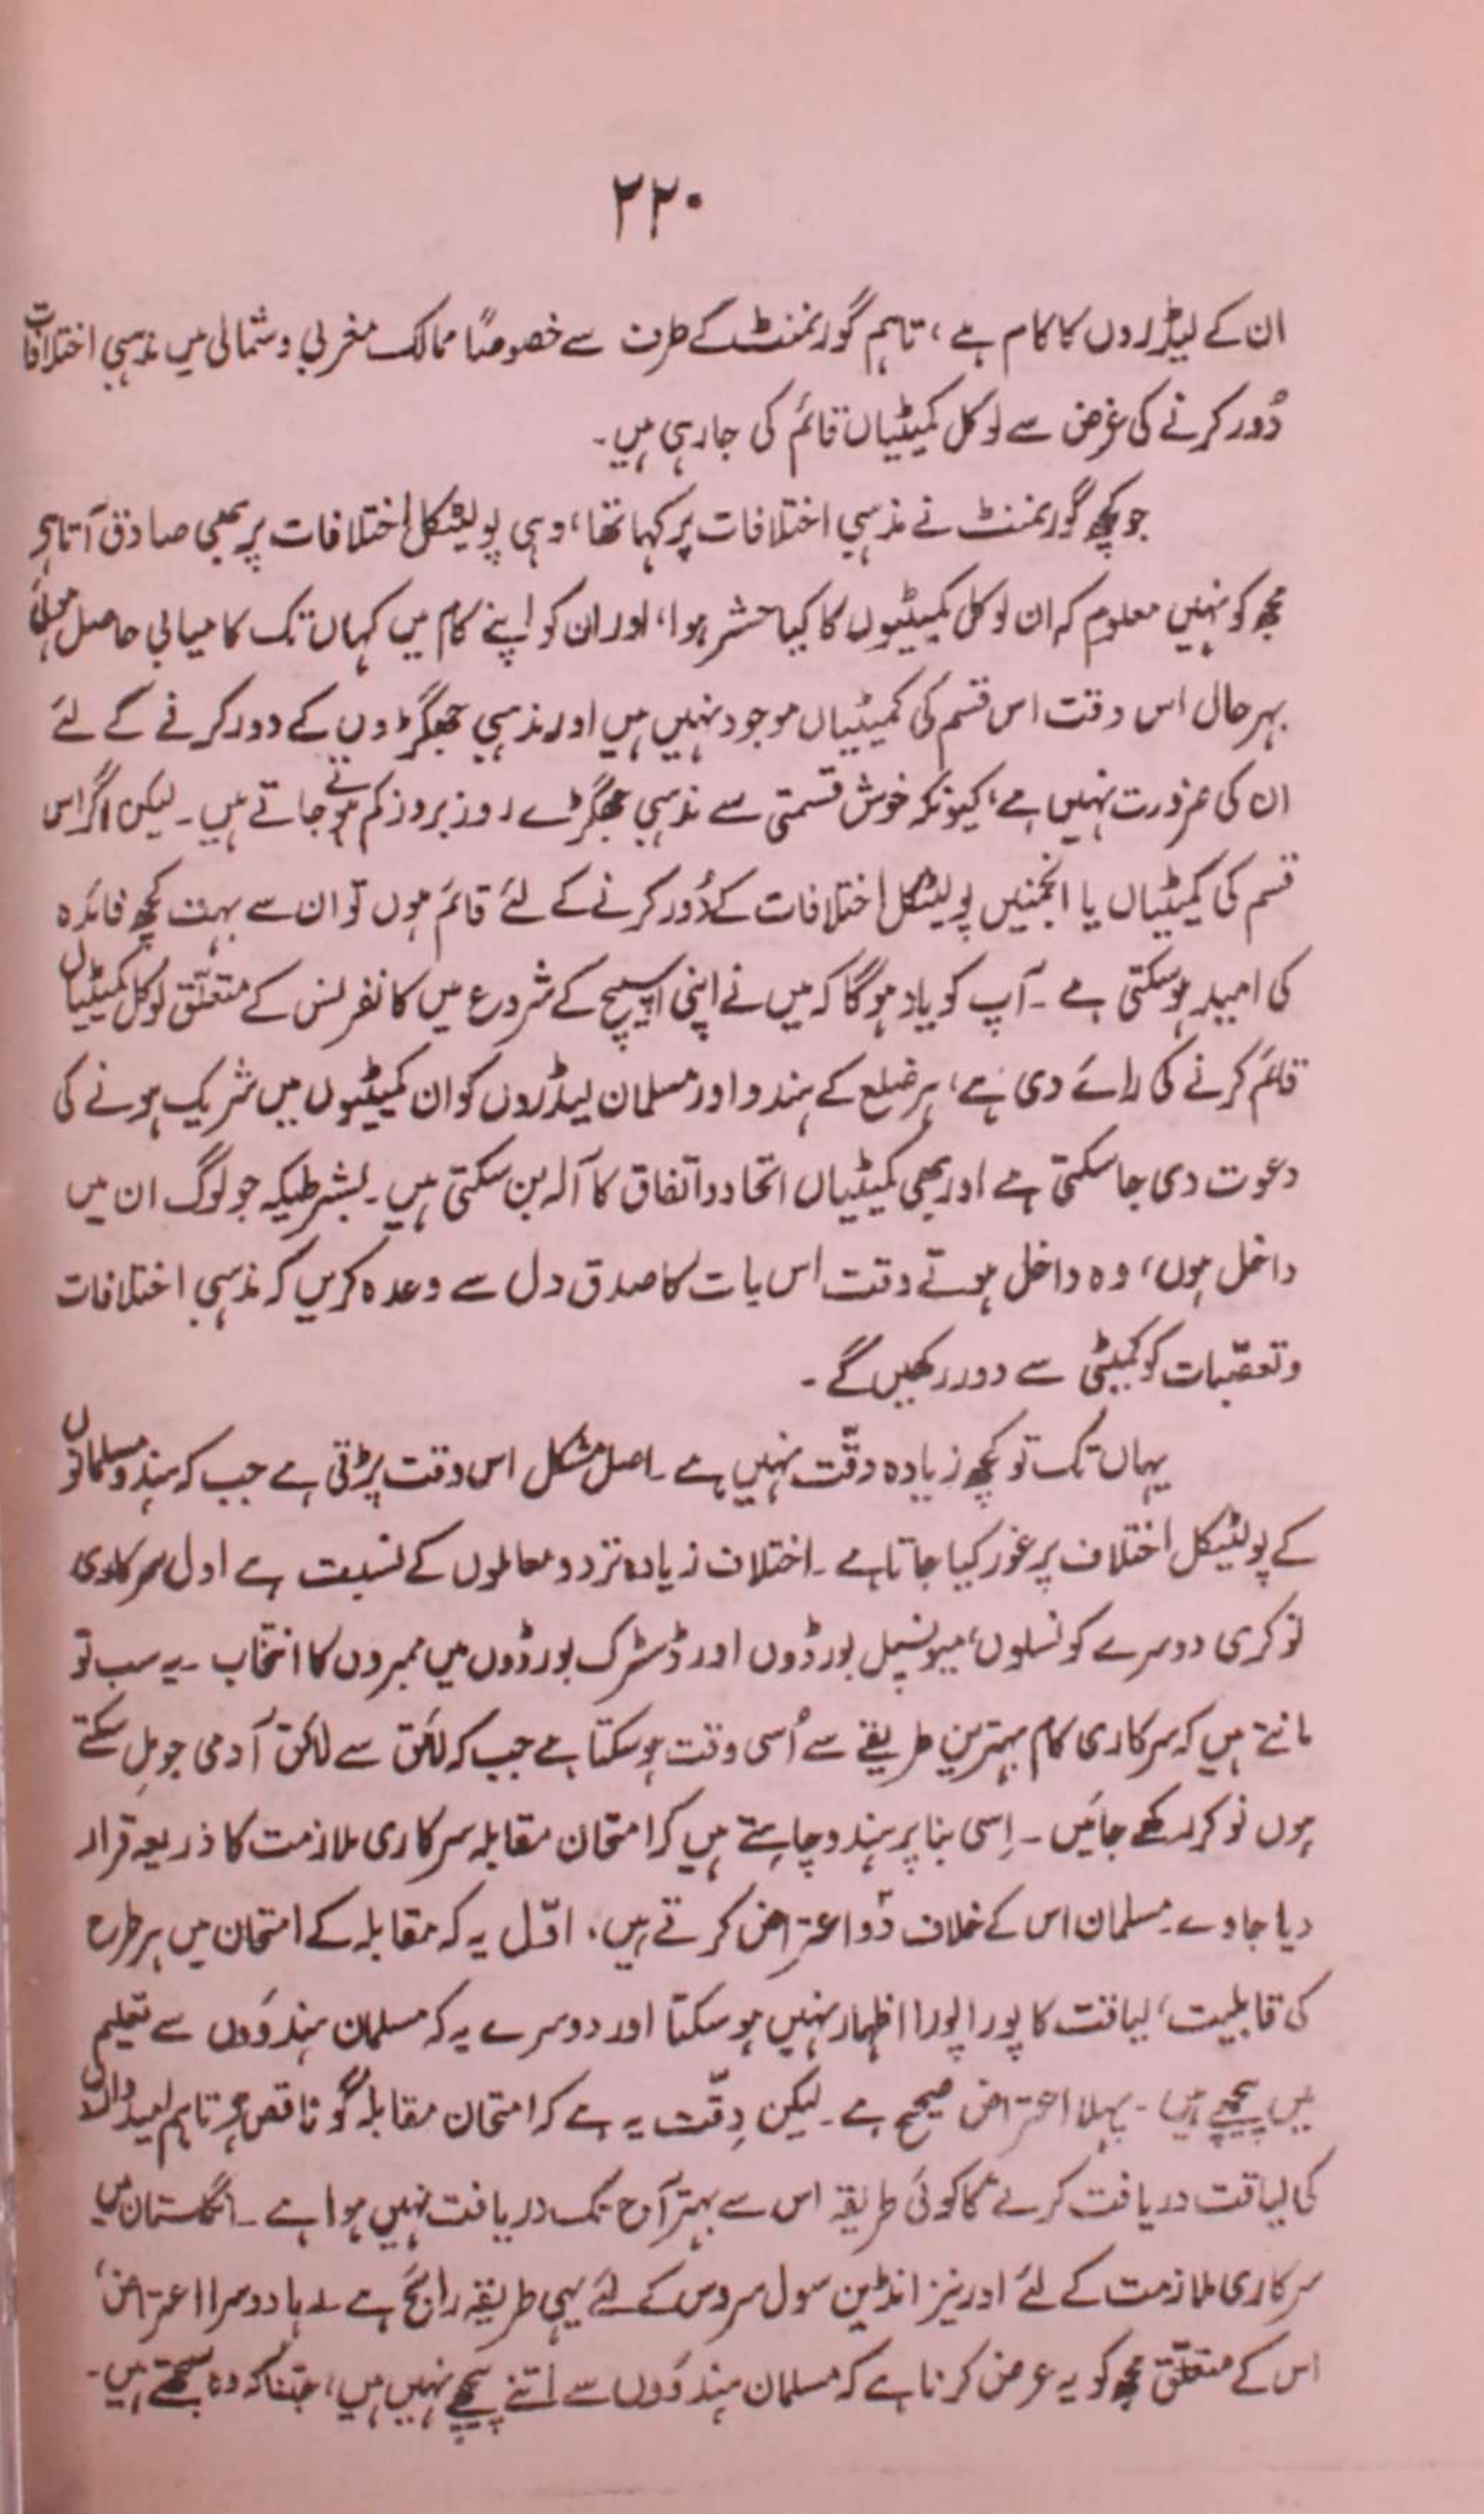 ۲۲۰
ان کے لیڈروں کا کام ہے، تاہم گورنمنٹ کے طرف سے خصوصًا ممالک مغربی و شمالی میں مذہبی اختلافات
دُور کرنے کی غرض سے لوکل کمیٹیاں قائم کی جا رہی ہیں۔
جو کچھ گورنمنٹ نے مذہبی اختلافات پر کہا تھا، وہی پولیٹکل اختلافات پر بھی صادق آتا ہے
مجھ کو نہیں معلوم کہ ان لوکل کمیٹیوں کا کیا حشر ہوا، اور ان کو اپنے کام میں کہاں تک کامیابی حاصل ہوئی
بہر حال اس وقت اس قسم کی کمیٹیاں موجود نہیں ہیں اور مذہبی جھگڑوں کے دور کرنے کے لئے
ان کی ضرورت نہیں ہے، کیونکہ خوش قسمتی سے مذہبی جھگڑے روز بروز کم ہوتے جاتے ہیں۔ لیکن اگر اس
قسم کی کمیٹیاں یا انجمنیں پولیٹکل اختلافات کے دُور کرنے کے لئے قائم ہوں تو ان سے بہت کچھ فائدہ
کی امید ہو سکتی ہے۔ آپ کو یاد ہوگا کہ میں نے اپنی اسپیچ کے شروع میں کانفرنس کے متعلّق لوکل کمیٹیاں
قائم کرنے کی رائے دی ہے، ہر ضلع کے ہندو اور مسلمان لیڈروں کو ان کمیٹیوں میں شریک ہونے کی
دعوت دی جا سکتی ہے اور یہی کمیٹیاں اتحاد و اتفاق کا آلہ بن سکتی ہیں۔ بشرطیکہ جو لوگ ان میں
داخل ہوں، وہ داخل ہوتے وقت اس بات کا صدق دل سے وعدہ کریں کہ مذہبی اختلافات
و تعصّبات کو کمیٹی سے دور رکھیں گے۔
یہاں تک تو کچھ زیادہ دقّت نہیں ہے۔ اصل مشکل اس وقت پڑتی ہے جب کہ ہندو مسلمانوں
کے پولیٹیکل اختلاف پر غور کیا جاتا ہے۔ اختلاف زیادہ تر دو معاملوں کے نسبت ہے اول سرکاری
نوکری دوسرے کونسلوں، میونسپل بورڈوں اور ڈسٹرک بورڈوں میں ممبروں کا انتخاب۔ یہ سب تو
مانتے ہیں کہ سرکاری کام بہترین طریقے سے اُسی وقت ہو سکتا ہے جب کہ لائق سے لائق آدمی جو مِل سکتے
ہوں نوکر رکھے جائیں۔ اِسی بنا پر ہندو چاہتے ہیں کہ امتحان مقابلہ سرکاری ملازمت کا ذریعہ قرار
دیا جاوے۔ مسلمان اس کے خلاف دو اعتراض کرتے ہیں، اوّل یہ کہ مقابلہ کے امتحان میں ہر طرح
کی قابلیت، لیاقت کا پورا پورا اظہار نہیں ہو سکتا اور دوسرے یہ کہ مسلمان ہندوؤں سے تعلیم
میں پیچھے ہیں۔ پہلا اعتراض صحیح ہے۔ لیکن دِقّت یہ ہے کہ امتحان مقابلہ گو ناقص ہے تاہم امیدواروں
کی لیاقت دریافت کرنے کا کوئی طریقہ اس سے بہتر آج تک دریافت نہیں ہوا ہے۔ انگلستان میں
سرکاری ملازمت کے لئے اور نیز انڈین سول سروس کے لئے یہی طریقہ رائج ہے۔ رہا دوسرا اعتراض،
اس کے متعلّق مجھ کو یہ عرض کرنا ہے کہ مسلمان ہندوؤں سے اتنے پیچھے نہیں ہیں، جتنا کہ وہ سمجھتے ہیں۔